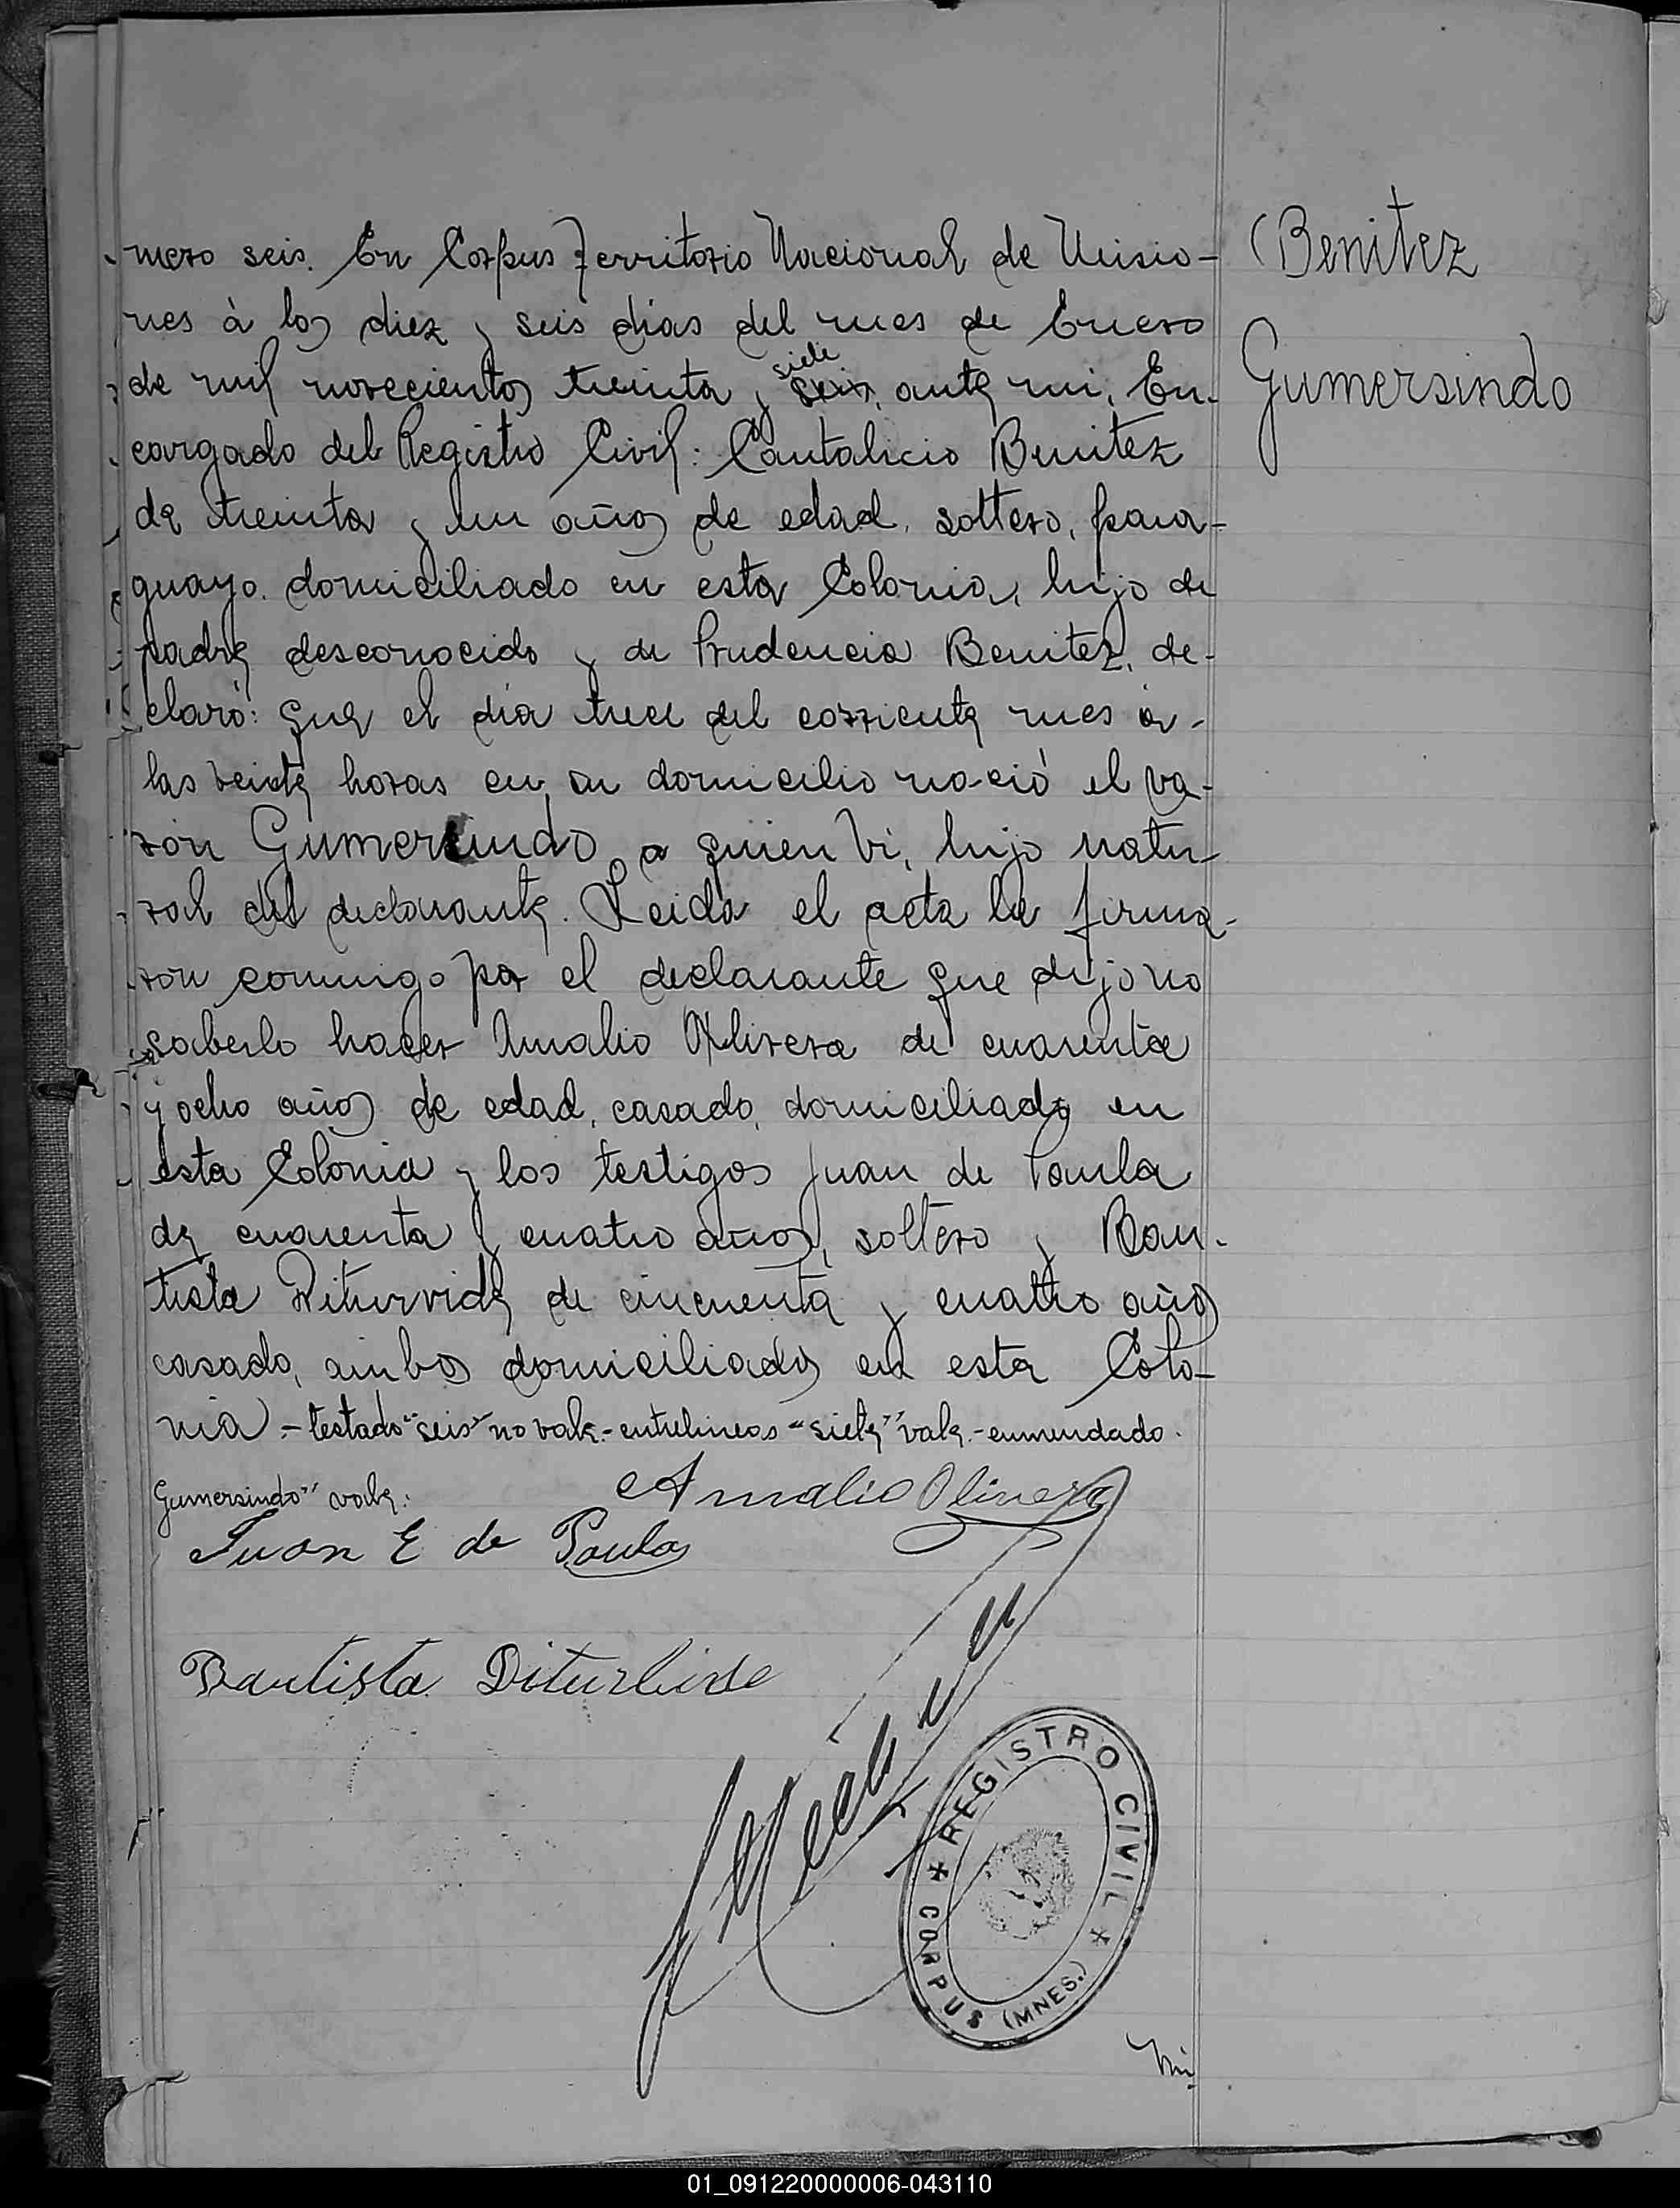 mero seis. En Corpus Territorio Nacional de Misio-
nes à los diez y seis dias del mes de Enero
siete
de mil novecientos treinta y seis, ante mi, En-
cargado del Registro Civil: Cantalicio Benitez
de treinta y un años de edad, soltero, para-
guayo, domiciliado en esta Colonia, hijo de
padre desconocido y de Prudencia Benitez, de-
claró: que el dia trece del corriente mes a-
las veinte horas en su domicilio na-ció el va-
ron Gumersindo, a quien vi, hijo natu-
ral del declarante. Leida el acta la firma-
ron conmigo por el declarante que dijo no
saberlo hacer Amalio Olivera de cuarenta
y ocho años de edad, casado, domiciliado en
esta Colonia y los testigos Juan de Paula
de cuarenta y cuatro años, soltero y Bau-
tista Diturvide de cincuenta y cuatro años
casado, ambos domiciliados en esta Colo-
nia - testado "seis" no vale - entrelineas "siete" vale - enmendado.
Gumersindo" vale.
Amalio Olivera
Juan E de Paula
Bautista Diturbide
REGISTRO CIVIL
CORPUS (MNES.)
Nú-
Benitez
Gumersindo
01_091220000006-043110